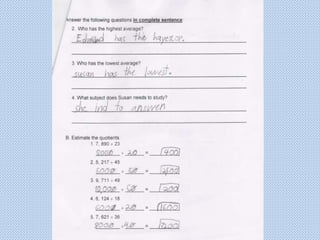 Answer the following questions in complete sentence:
2. Who has the highest average?
has the hayesor.
3. Who has the lowest average?
susan has the lowest.
4. What subject does Susan needs to study?
she ind to answen
B. Estimate the quotients.
1. 7, 890 ÷ 23
8000 ÷ 20 = 400
2. 5, 217 ÷ 45
5000 ÷ 50 =
3. 9, 711 ÷ 49
10,000 ÷ 50 = 200
4. 6, 124 ÷ 18
6000 ÷ 20 =
5. 7, 621 ÷ 36
8000 ÷ 40 =